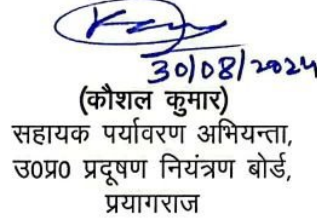 30/08/2024
(कौशल कुमार)
सहायक पर्यावरण अभियन्ता,
उ०प्र० प्रदूषण नियंत्रण बोर्ड,
प्रयागराज